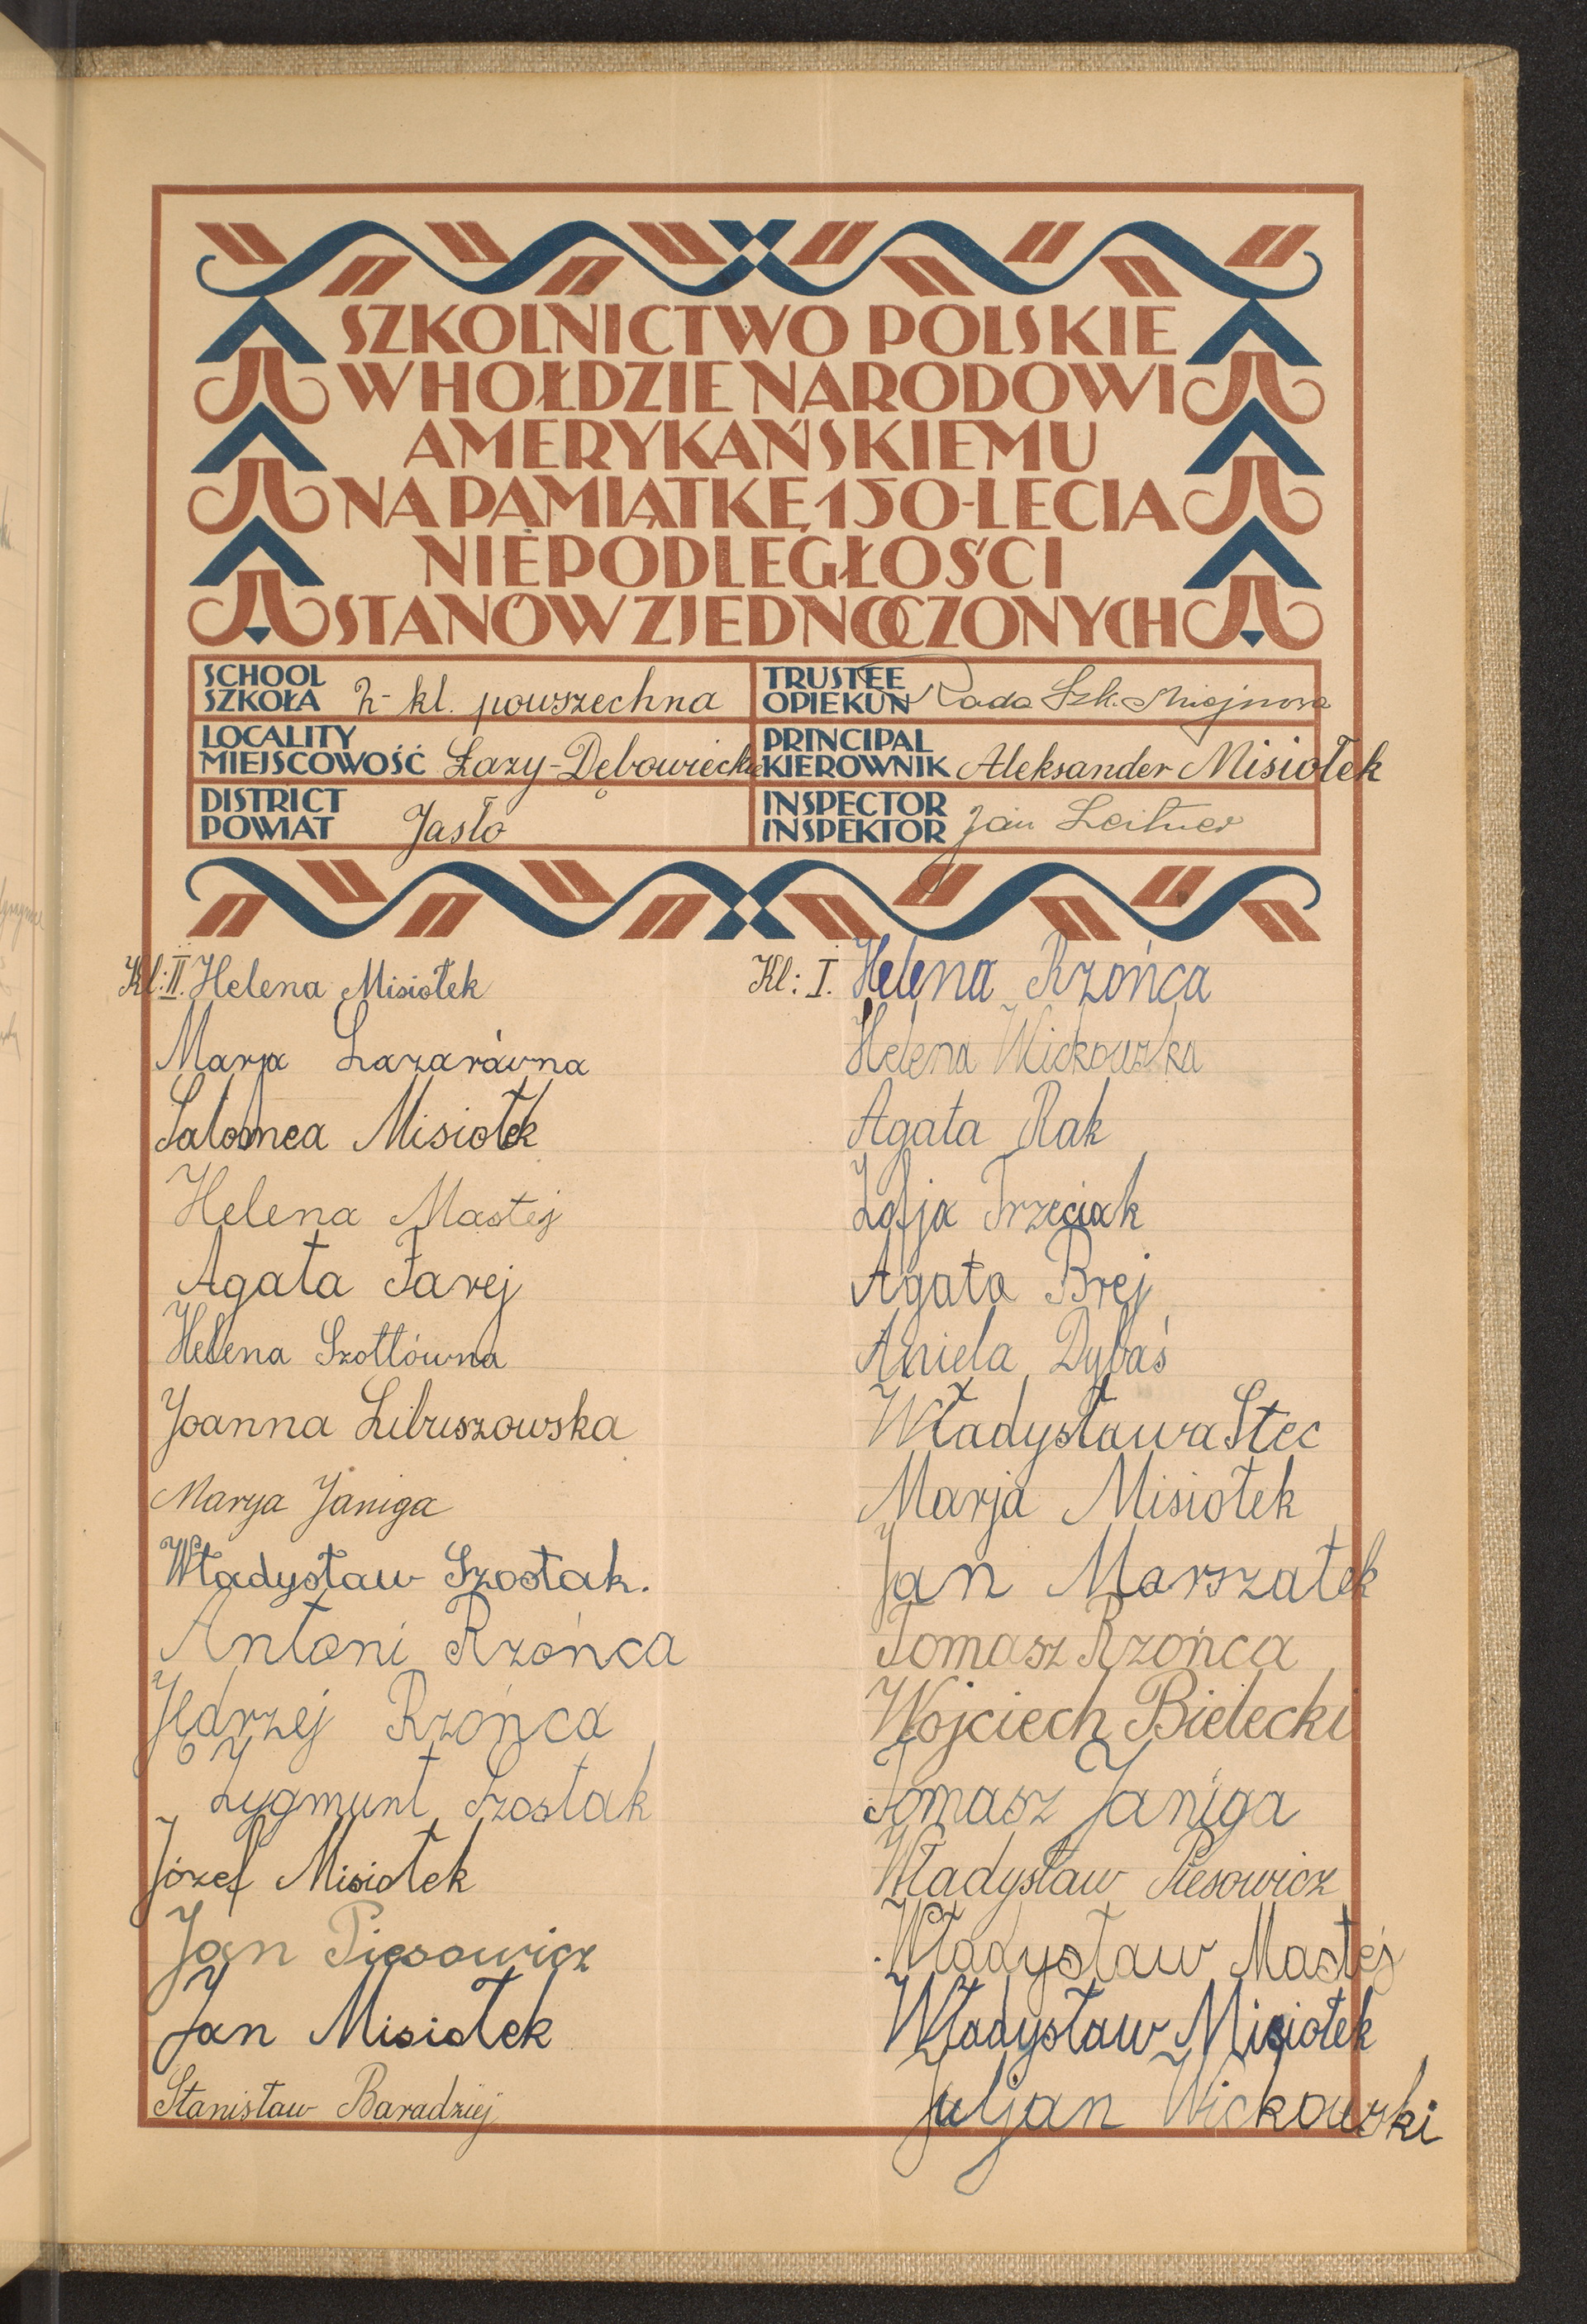 SZKOLNICTWO POLSKIE
W HOŁDZIE NARODOWI
AMERYKAŃSKIEMU
NA PAMIĄTKĘ 150-LECIA
NIEPODLEGŁOŚCI
STANÓW ZJEDNOCZONYCH
SCHOOL
SZKOŁA 2-kl. powszechna
TRUSTEE
OPIEKUN Rada Szk. Miejscowa
LOCALITY
MIEJSCOWOŚĆ Łazy-Dębowieckie
PRINCIPAL
KIEROWNIK Aleksander Misiołek
DISTRICT
POWIAT Jasło
INSPECTOR
INSPEKTOR Jan Leitner
Kl: II. Helena Misiołek
Marja Lazarówna
Salomea Misiołek
Helena Mastej
Agata Farej
Helena Szottówna
Joanna Libuszowska
Marya Janiga
Władysław Szostak.
Antoni Rzońca
Jędrzej Rzońca
Zygmunt Szostak
Józef Misiołek
Jan Piesowicz
Jan Misiołek
Stanisław Baradziej
Kl: I. Helena Rzońca
Helena Wickowska
Agata Rak
Zofja Trzeciak
Agata Brej
Aniela Dybaś
Władysława Stec
Marja Misiołek
Jan Marszałek
Tomasz Rzońca
Wojciech Bielecki
Tomasz Janiga
Władysław Piesowicz
Władysław Mastej
Władysław Misiołek
Juljan Wickowski